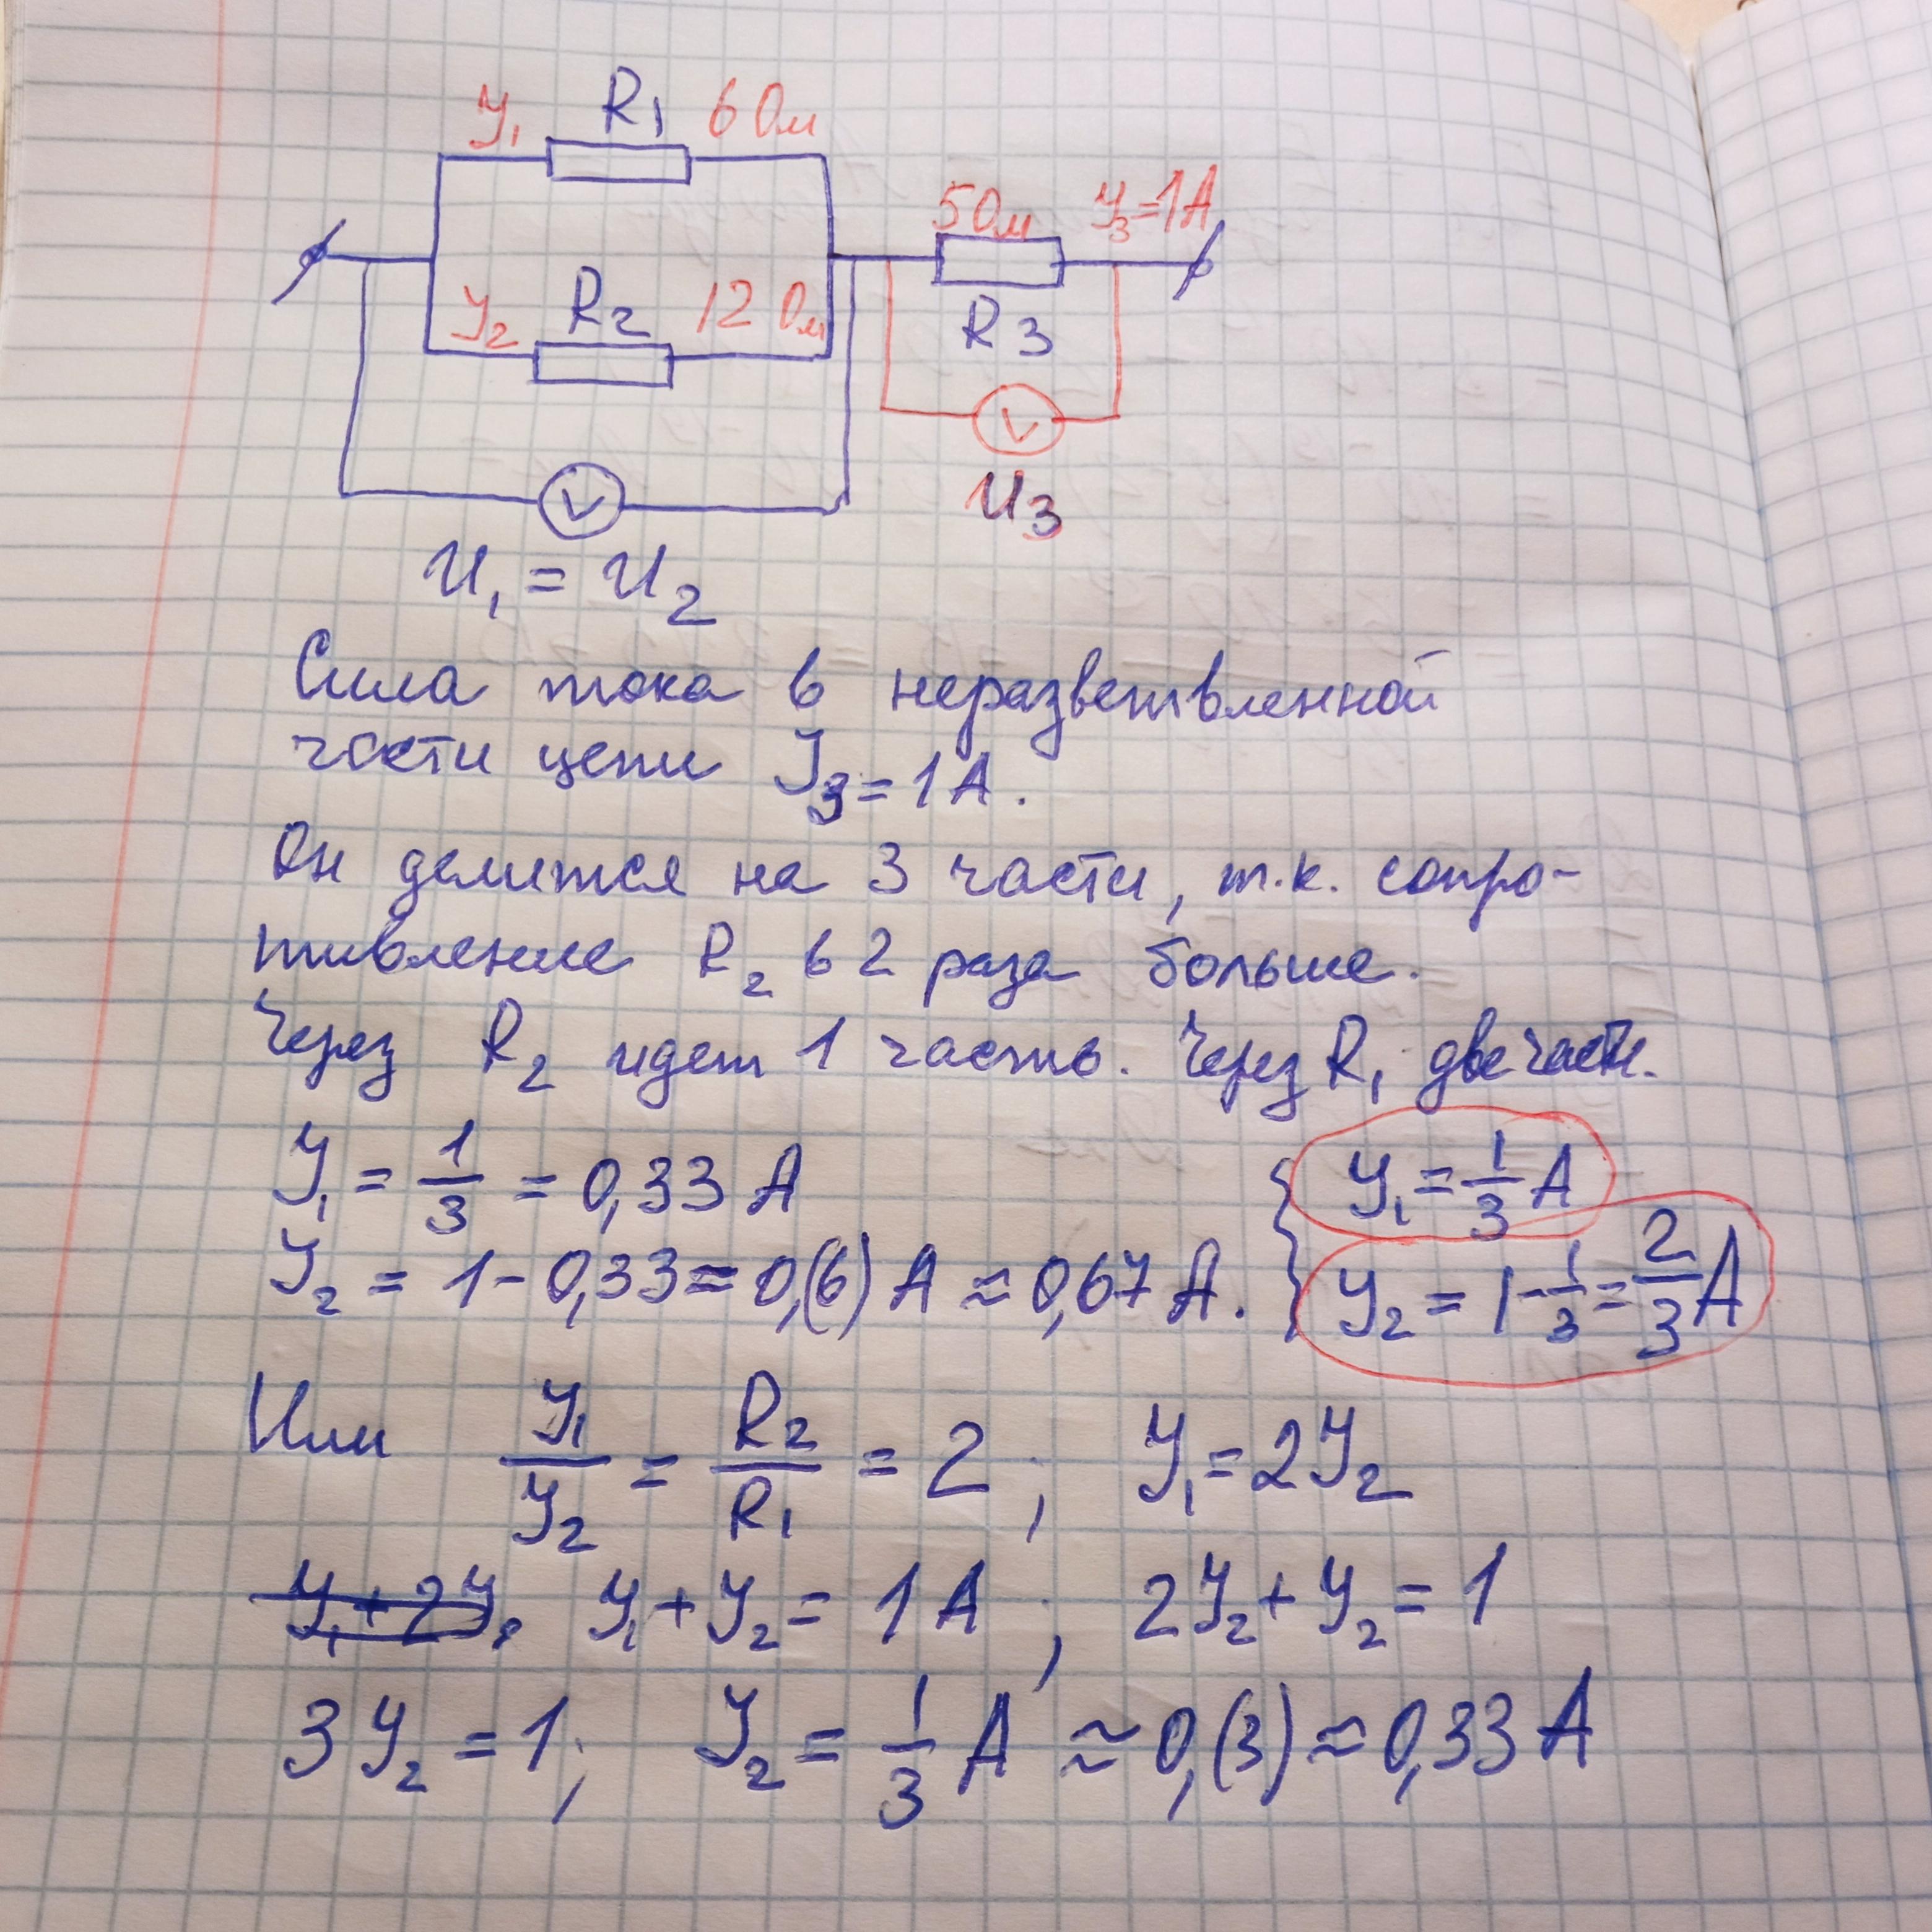 У₁ R1 6 Ом
5 Ом У₃=1А
У₂ R2 12 Ом
R3
V
V
U₃
U₁ = U₂
Сила тока в неразветвленной
части цепи У₃ = 1А.
Он делится на 3 части, т.к. сопро-
тивление R₂ в 2 раза больше.
Через R₂ идет 1 часть. Через R₁ две части.
У₁ = 1/3 = 0,33 А { У₁ = 1/3 А
У₂ = 1 - 0,33 = 0,(6) А ≈ 0,67 А. У₂ = 1 - 1/3 = 2/3 А
Или У₁/У₂ = R₂/R₁ = 2 ; У₁ = 2У₂
У₁ + 2У₂ У₁ + У₂ = 1 А ; 2У₂ + У₂ = 1
3У₂ = 1; У₂ = 1/3 А ≈ 0,(3) ≈ 0,33 А